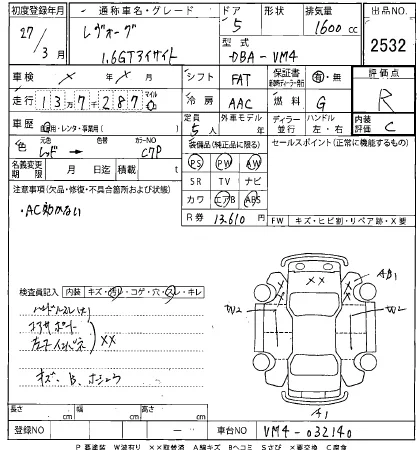 初度登録年月 通称車名・グレード ドア 形状 排気量 出品NO.
27/3月 レヴォーグ 5 1600cc 2532
1.6GTアイサイト 型式 DBA-VM4
車検 × 年 × 月 シフト FAT 保証書 有・無 評価点
走行 137287 マイル km 冷房 AAC 燃料 G R
車歴 自家用・レンタ・事業用( ) 定員 5人 外車モデル 年 ディーラー・並行 ハンドル 左・右 内装評価 C
色 元色 レッド → 色替 カラーNO C7P 装備品(純正品に限る) セールスポイント(正常に機能するもの)
名義変更期限 月 日迄 積載 t PS PW AW
注意事項(欠品・修復・不具合箇所および状態) SR TV ナビ
・AC効かない カワ エアB ABS
R券 13,610円 FW キズ・ヒビ割・リペア跡・X要
検査員記入 内装 キズ・汚レ・コゲ・穴・スレ・キレ
コアサポート
××
キズ、B、ホシュウ
×× A B1
W2 W2
A1
長さ cm 幅 cm 高さ cm
登録NO — 車台NO VM4-032140
P要塗装 W波有り ××取替済 A線キズ Bヘコミ Sさび X要交換 C腐食